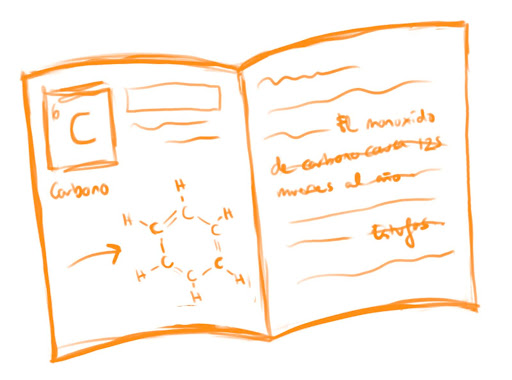 6
C
Carbono
H
H C C H
C C
H C H
H
El monoxido
de carbono causa 125
muertes al año
Estufas